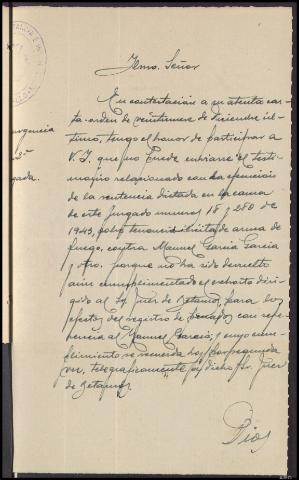 Ilmo. Señor
En contestación a su atenta car-
ta-orden de veintinueve de Diciembre úl-
timo, tengo el honor de participar a
V.I. que no puede enviarse el testi-
monio relacionado con la ejecución
de la sentencia dictada en la causa
de este Juzgado número 18 y 280 de
1943, sobre tenencia ilícita de arma de
fuego, contra Manuel García García
y otro, porque no ha sido devuelto
aun cumplimentado el exhorto diri-
gido al Sr. Juez de Betanzos, para los
efectos del registro de penados con refe-
rencia al Manuel García; y cuyo cum-
plimiento se recuerda hoy, por segunda
vez, telegráficamente a dicho Sr. Juez
de Betanzos.
Dios
urgencia
gada.